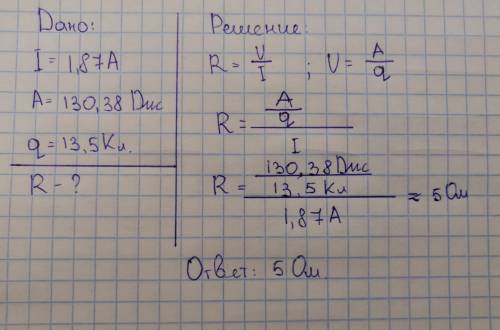 Дано:
I = 1,87 А
A = 130,38 Дж
q = 13,5 Кл.
R - ?
Решение:
R = U/I ; U = A/q
R = (A/q)/I
R = (130,38 Дж/13,5 Кл)/1,87 А ≈ 5 Ом
Ответ: 5 Ом.